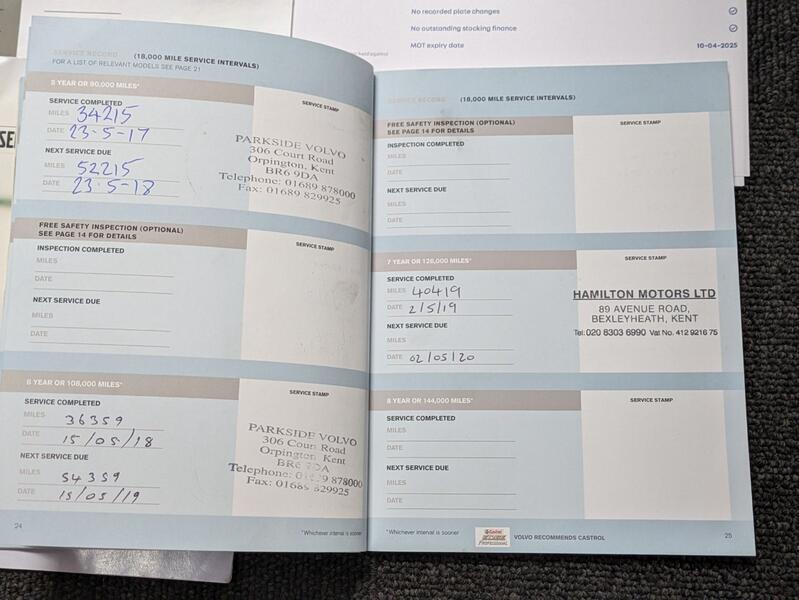 No recorded plate changes
No outstanding stocking finance
MOT expiry date 10-04-2025
SERVICE RECORD (18,000 MILE SERVICE INTERVALS)
FOR A LIST OF RELEVANT MODELS SEE PAGE 21
5 YEAR OR 90,000 MILES*
SERVICE STAMP
SERVICE COMPLETED
MILES 34215
DATE 23-5-17
NEXT SERVICE DUE
MILES 52215
DATE 23-5-18
PARKSIDE VOLVO
306 Court Road
Orpington, Kent
BR6 9DA
Telephone: 01689 878000
Fax: 01689 829925
FREE SAFETY INSPECTION (OPTIONAL)
SEE PAGE 14 FOR DETAILS
SERVICE STAMP
INSPECTION COMPLETED
MILES
DATE
NEXT SERVICE DUE
MILES
DATE
6 YEAR OR 108,000 MILES*
SERVICE STAMP
SERVICE COMPLETED
MILES 36359
DATE 15/05/18
NEXT SERVICE DUE
MILES 54359
DATE 15/05/19
PARKSIDE VOLVO
306 Court Road
Orpington, Kent
BR6 DA
Telephone: 878000
Fax: 01689 829925
24
*Whichever interval is sooner
SERVICE RECORD (18,000 MILE SERVICE INTERVALS)
FREE SAFETY INSPECTION (OPTIONAL)
SEE PAGE 14 FOR DETAILS
SERVICE STAMP
INSPECTION COMPLETED
MILES
DATE
NEXT SERVICE DUE
MILES
DATE
7 YEAR OR 126,000 MILES*
SERVICE STAMP
SERVICE COMPLETED
MILES 40419
DATE 2/5/19
NEXT SERVICE DUE
MILES
DATE 02/05/20
HAMILTON MOTORS LTD
89 AVENUE ROAD,
BEXLEYHEATH, KENT
Tel: 020 8303 6990 Vat No. 412 9216 75
8 YEAR OR 144,000 MILES*
SERVICE STAMP
SERVICE COMPLETED
MILES
DATE
NEXT SERVICE DUE
MILES
DATE
*Whichever interval is sooner
Castrol
Professional
VOLVO RECOMMENDS CASTROL
25